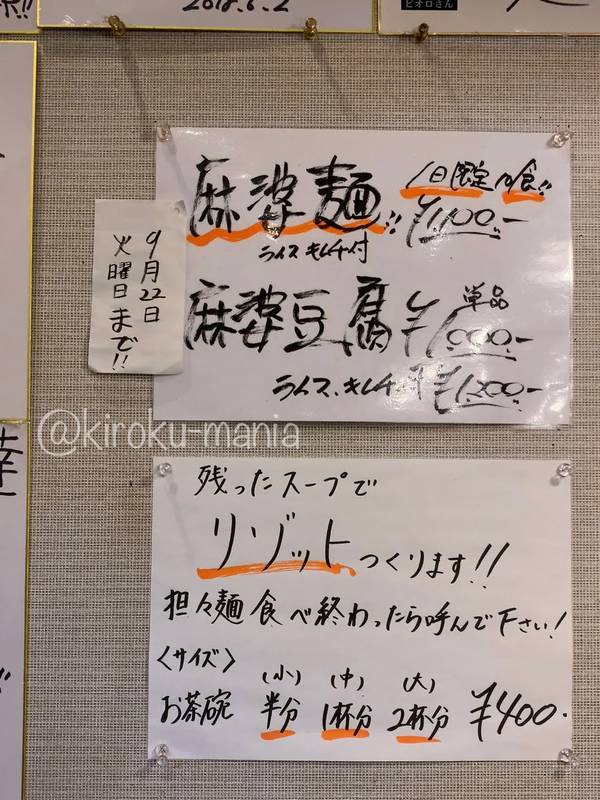 2018.6.2
ピオロさん
麻婆麺!! 1日限定10食!! ¥1,100-
ライス キムチ付
麻婆豆腐 単品 ¥1,000-
ライス、キムチ付 ¥1,200-
9月22日
火曜日まで!!
@kiroku-mania
残ったスープで
リゾットつくります!!
担々麺食べ終わったら呼んで下さい!
〈サイズ〉
(小) (中) (大)
お茶碗 半分 1杯分 2杯分 ¥400.